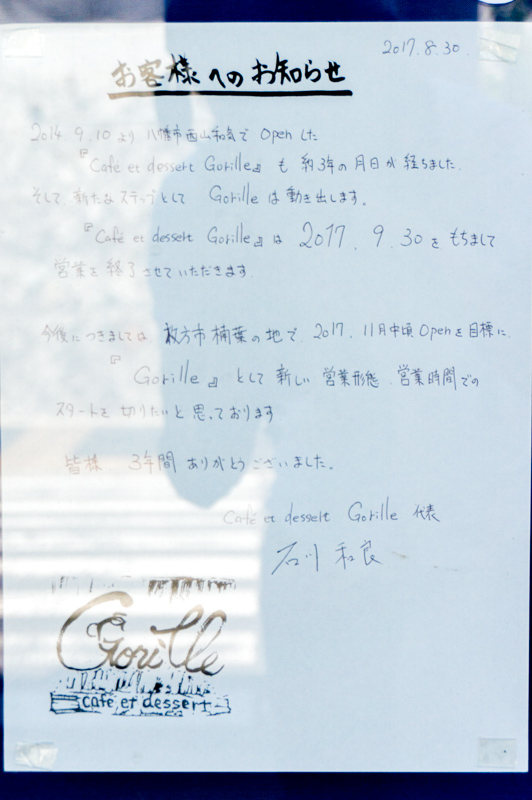 2017.8.30.
お客様へのお知らせ
2014.9.10より 八幡市西山和気で Openした
『Café et dessert Gorille』も 約3年の月日が経ちました。
そして、新たなステップとして Gorilleは動き出します。
『Café et dessert Gorille』は 2017.9.30をもちまして
営業を終了させていただきます。
今後につきましては、枚方市楠葉の地で、2017.11月中頃Openを目標に、
『Gorille』として新しい営業形態、営業時間での
スタートを切りたいと思っております
皆様 3年間ありがとうございました。
Café et dessert Gorille 代表
石川和良
Gorille
café et dessert